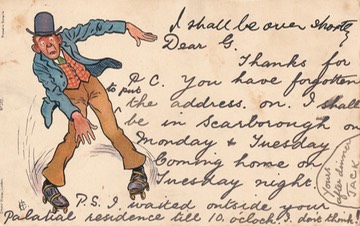 I shall be over shortly
Dear G.
Thanks for
P.C. You have forgotten
to put the address. on. I shall
be in Scarborough on
Monday & Tuesday
Coming home on
Tuesday night
Yours
after dinner
P.S. I waited outside your
Palatial residence till 10. o'clock. I don't think!